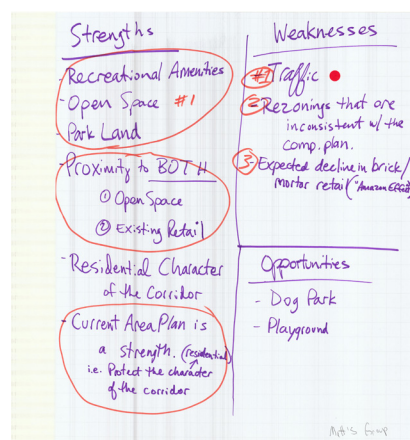 Strengths
- Recreational Amenities
- Open Space #1
- Park Land
- Proximity to BOTH
① Open Space
② Existing Retail
- Residential Character
of the Corridor
- Current Area Plan is
a strength. (residential)
i.e. Protect the character
of the corridor
Weaknesses
#1 Traffic
2 - Rezonings that are
inconsistent w/ the
comp. plan.
3 - Expected decline in brick/
mortar retail ("Amazon Effect")
Opportunities
- Dog Park
- Playground
Group